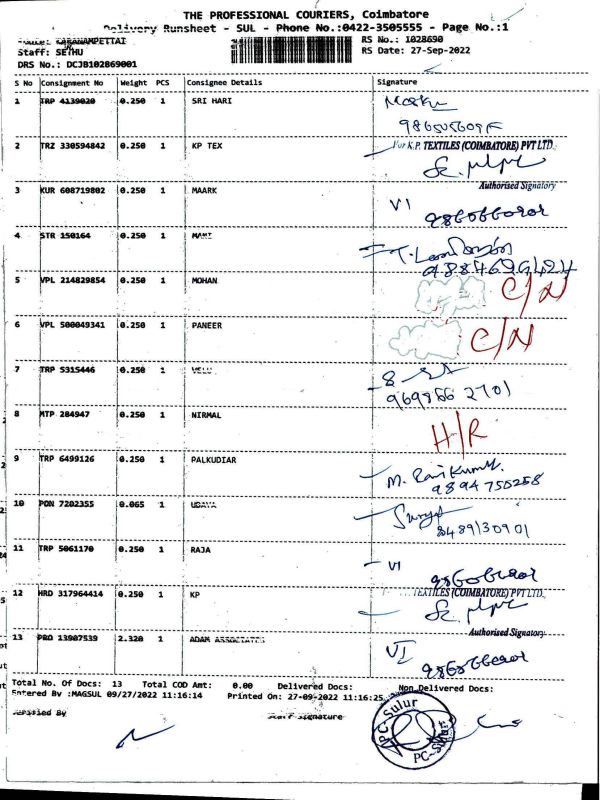 THE PROFESSIONAL COURIERS, Coimbatore
Delivery Runsheet - SUL - Phone No.:0422-3505555 - Page No.:1
KARANAMPETTAI RS No.: 1028690
Staff: SETHU RS Date: 27-Sep-2022
DRS No.: DCJB102869001
S No Consignment No Weight PCS Consignee Details Signature
1 TRP 4139020 0.250 1 SRI HARI
2 TRZ 330594842 0.250 1 KP TEX
For K.P. TEXTILES (COIMBATORE) PVT LTD.
Authorised Signatory
3 KUR 608719802 0.250 1 MAARK VI
4 STR 150164 0.250 1 MANI
5 VPL 214829854 0.250 1 MOHAN C/N
6 VPL 500049341 0.250 1 PANEER C/N
7 TRP 5315446 0.250 1 VELU
8 MTP 284947 0.250 1 NIRMAL H/R
9 TRP 6499126 0.250 1 PALKUDIAR M. Ravi Kumar
9894750258
10 PON 7202355 0.065 1 UDAYA Surya
8489130901
11 TRP 5061170 0.250 1 RAJA VI
12 HRD 317964414 0.250 1 KP
TEXTILES (COIMBATORE) PVT LTD.
Authorised Signatory
13 PRO 13907539 2.320 1 ADAM ASSOCIATES VI
Total No. Of Docs: 13 Total COD Amt: 0.00 Delivered Docs: Non Delivered Docs:
Entered By :MAGSUL 09/27/2022 11:16:14 Printed On: 27-09-2022 11:16:25
Verified By Staff Signature
PC-Sulur
PC-Sulur